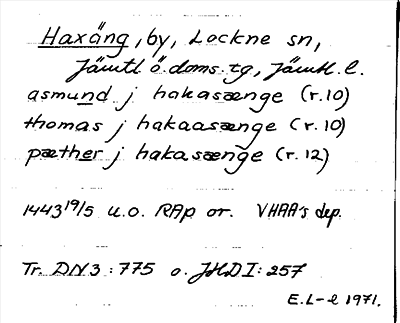 Haxäng, by, Lockne sn,
Jämtl. ö. doms. tg, Jämtl. l.
asmund j hakasænge (r. 10)
thomas j hakaasænge (r. 10)
pæther j hakasænge (r. 12)
1443 19/5 u.o. RAp or. VHAA's dep.
Tr. DN 3 : 775 o. JHD I : 257
E.L-l 1971.